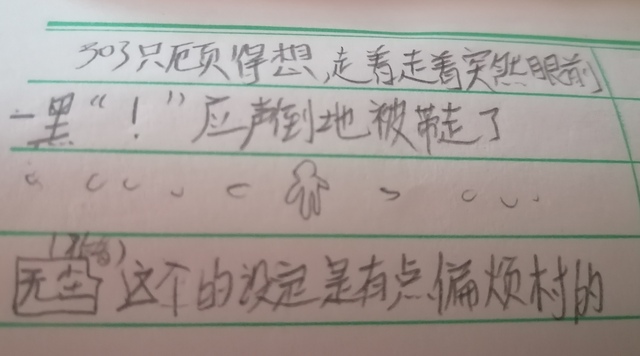 303只顾得想,走着走着突然眼前
一黑“！”应声倒地被带走了
无尘 这个的设定是有点偏烦村的